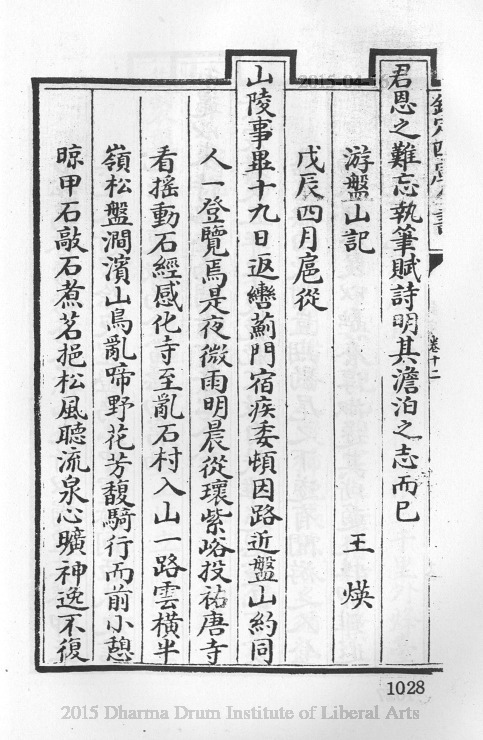 欽定四庫全書
卷十二
君恩之難忘執筆賦詩明其澹泊之志而已
游盤山記
王煐
戊辰四月扈從
山陵事畢十九日返轡薊門宿疾委頓因路近盤山約同
人一登覽焉是夜微雨明晨從瓌紫峪投祐唐寺
看搖動石經感化寺至亂石村入山一路雲橫半
嶺松盤澗濱山鳥亂啼野花芳馥騎行而前小憩
晾甲石敲石煮茗挹松風聽流泉心曠神逸不復
1028
2015 Dharma Drum Institute of Liberal Arts